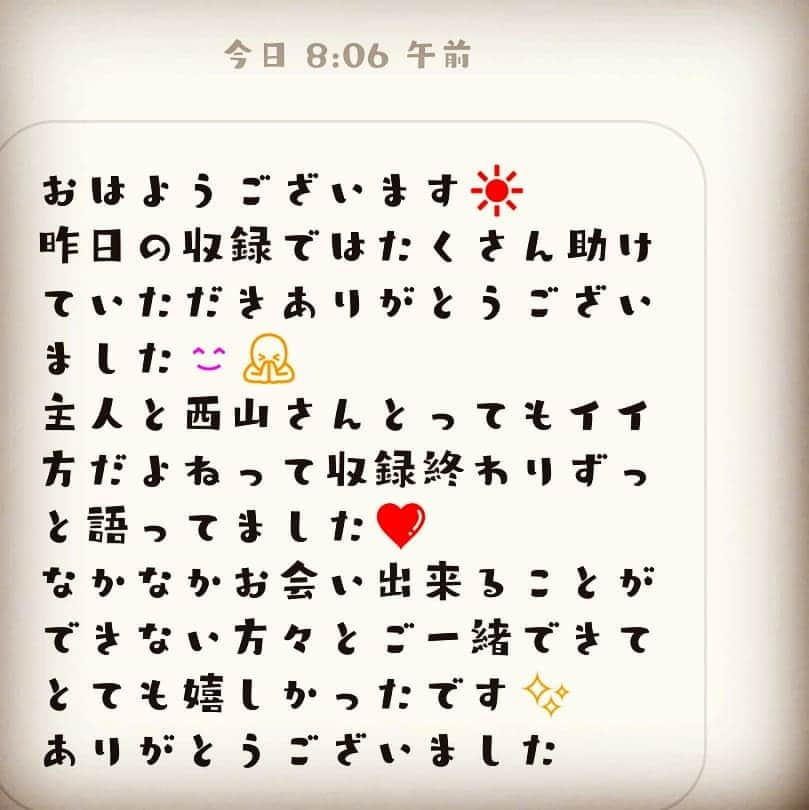 今日 8:06 午前
おはようございます☀
昨日の収録ではたくさん助け
ていただきありがとうござい
ました
主人と西山さんとってもイイ
方だよねって収録終わりずっ
と語ってました❤
なかなかお会い出来ることが
できない方々とご一緒できて
とても嬉しかったです✨
ありがとうございました